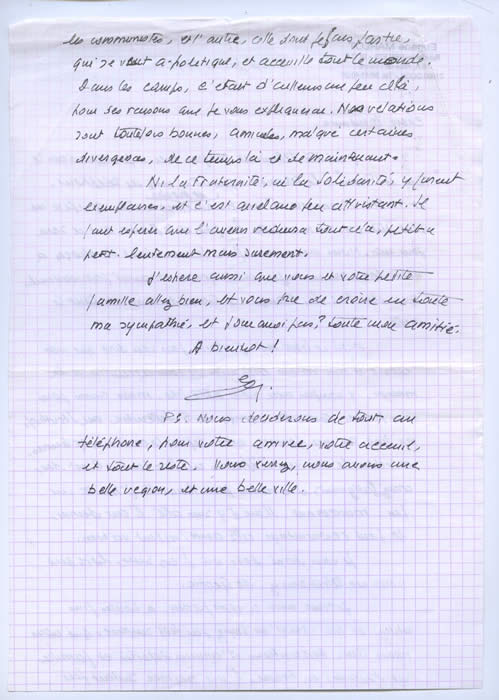 les communistes, et l'autre, celle dont je fais partie,
qui se veut a-politique, et acceuille tout le monde.
Dans les camps, c'était d'ailleurs un peu celà,
pour des raisons que je vous expliquerai. Nos relations
sont toutefois bonnes, amicales, malgré certaines
divergences, de ce temps là et de maintenant.
Ni la Fraternité, ni la Solidarité, y furent
exemplaires, et c'est quelque peu attristant. Il
faut espérer que l'avenir réduira tout cela, petit a
petit. lentement mais surement.
J'espère aussi que vous et votre petite
famille allez bien, et vous prie de croire en toute
ma sympathie, et pourquoi pas? toute mon amitié.
A bientot!
PS. Nous déciderons de tout au
téléphone, pour votre arrivée, votre acceuil,
et tout le reste. Vous verrez, nous avons une
belle region, et une belle ville.